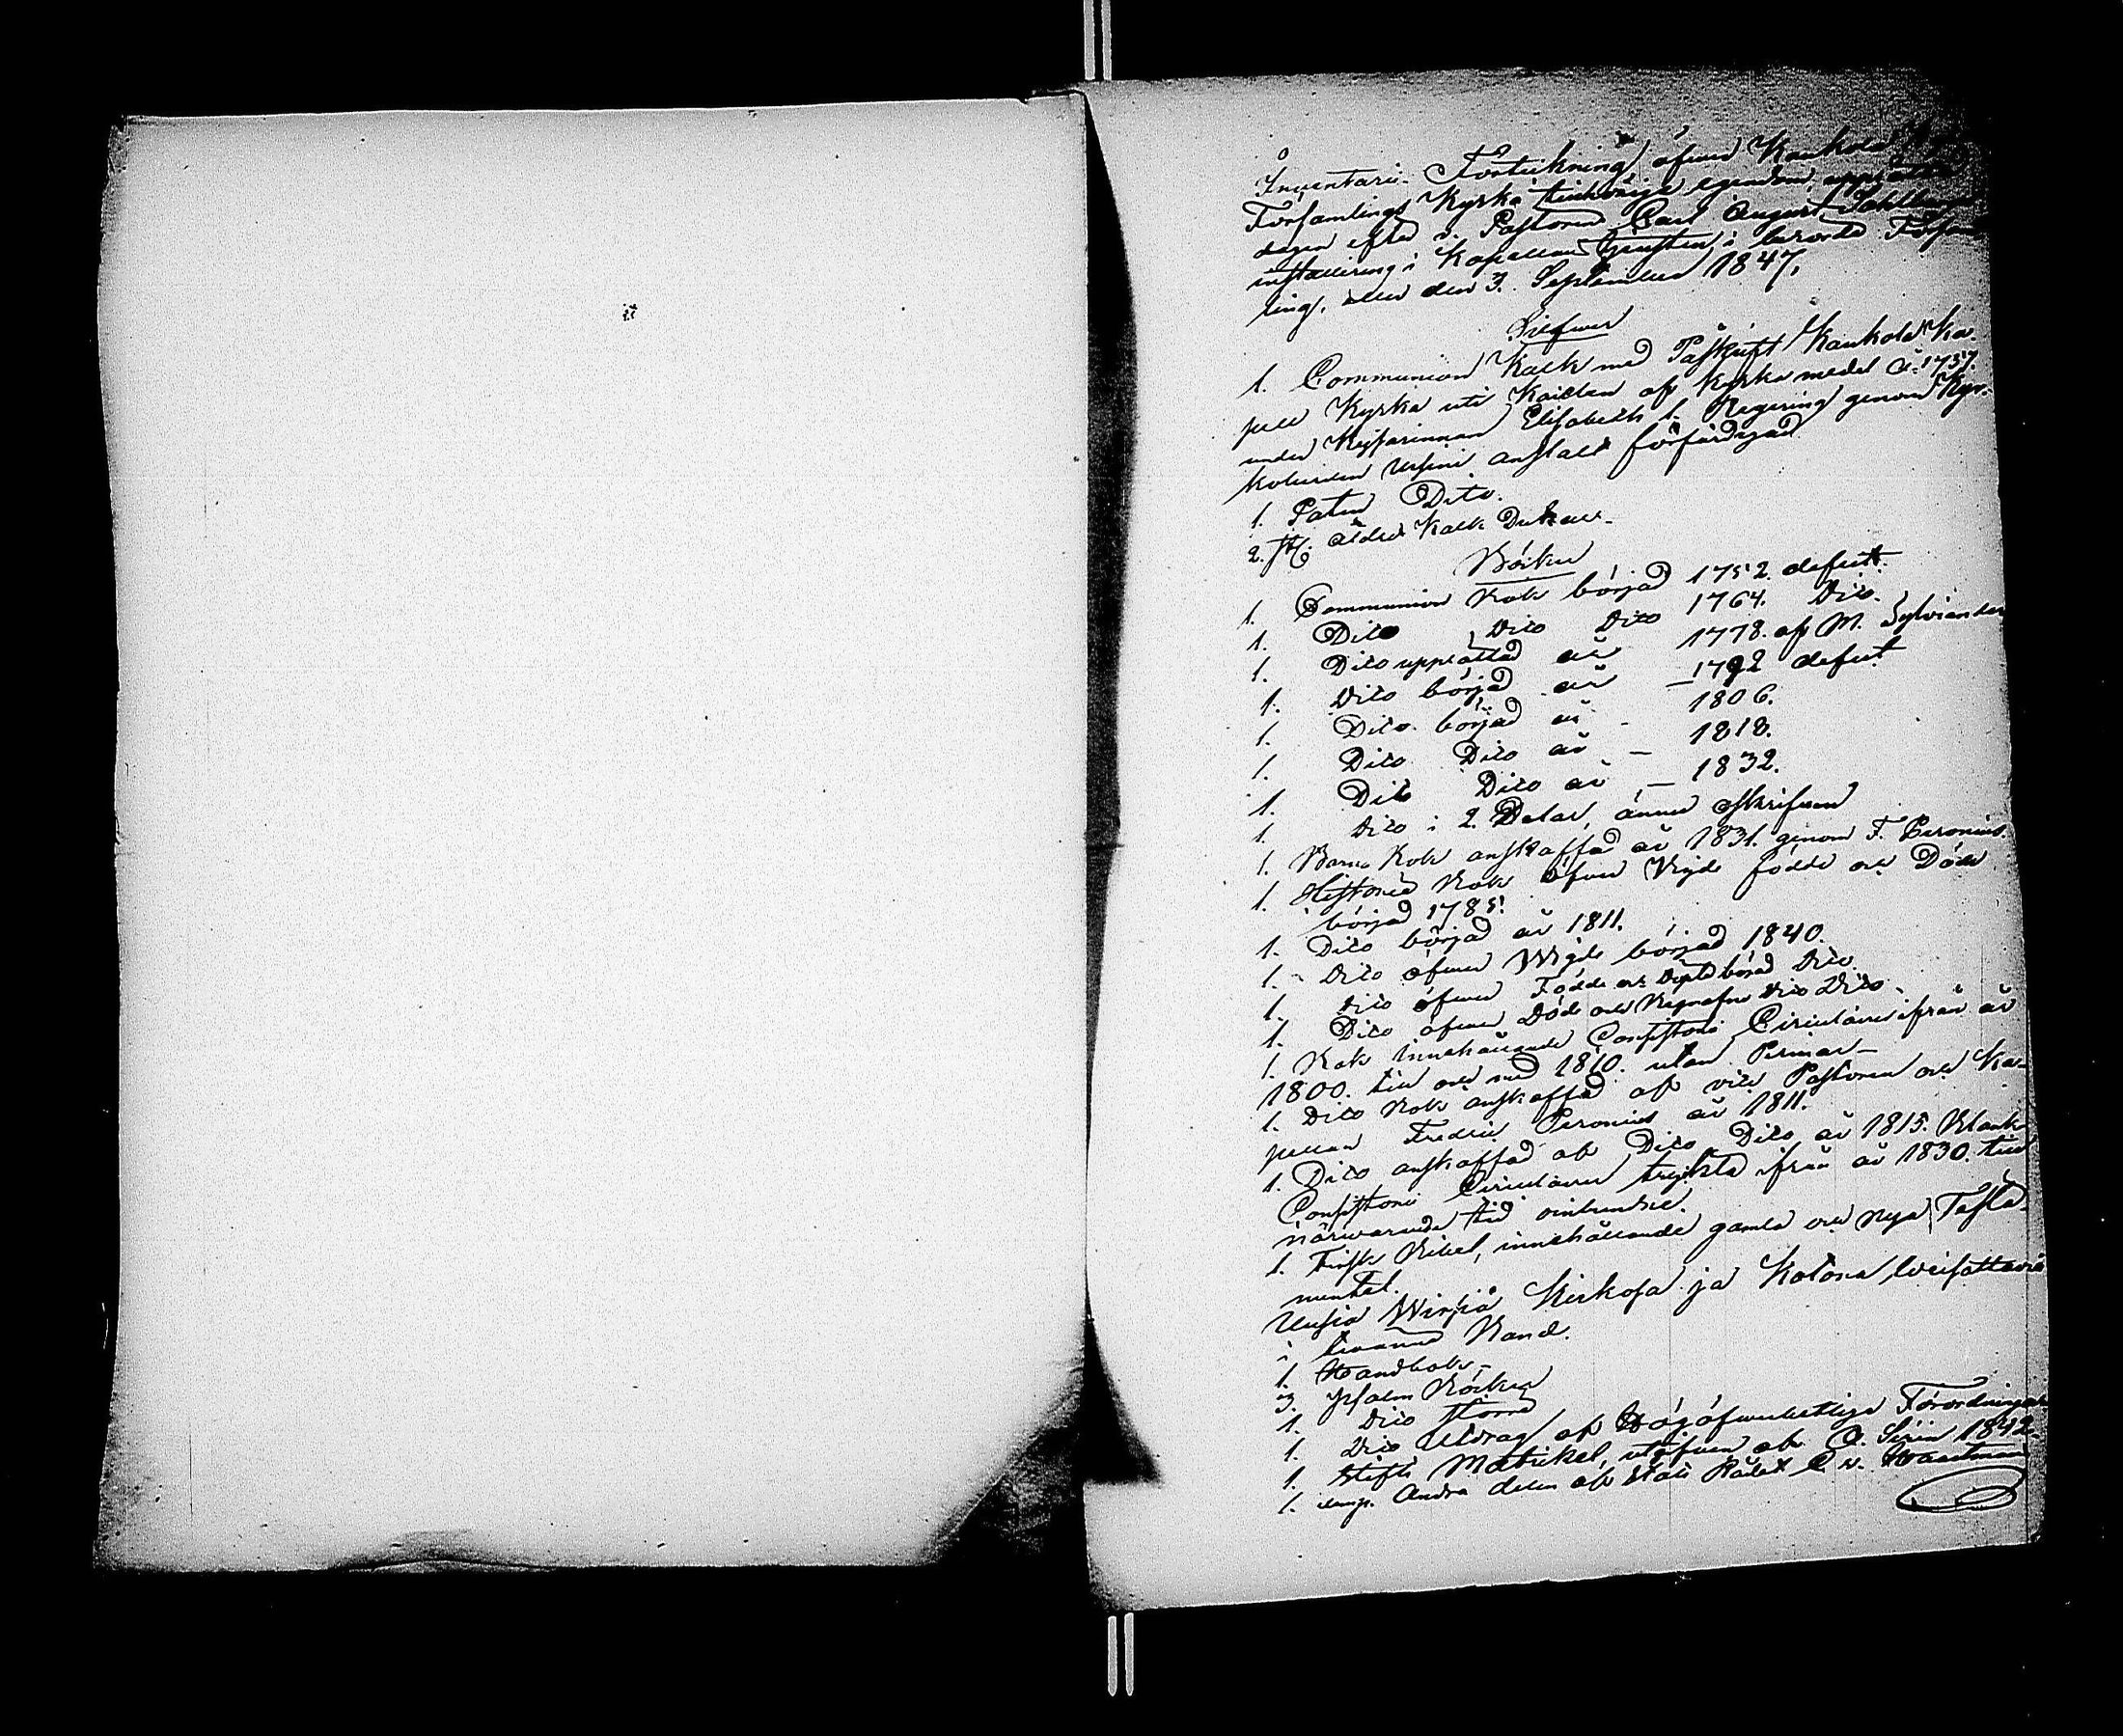 Inventarii Förteckning öfver Kaukola
Församlings Kyrka tillhörige egendom, upprättad
dagen efter v. Pastoren Carl August Dahlberg
installering i Kapellans tjensten, i berörde Försam
ling, som den 3. September 1847.
Silfver
1. Communion Kalk med Påskrift Kaukola Ka-
pell Kyrka uti Kexholm af Kyrko medel År 1757.
under Kejsarinnan Elisabeths 1. Regering genom Kyr-
koherden Ursini anstalt förfärdigad
1. Paten Dito.
2. st. äldre Kalk Dukar.
Böcker
1. Communion Bok börjad 1752. defect.
1. Dito Dito Dito 1764. Dito.
1. Dito upprättad år 1778. af M. Sylvander
1. Dito börjad år – 1792 defect
1. Dito börjad år – 1806.
1. Dito Dito år – 1818.
1. Dito Dito år – 1832.
1. Dito i 2. Delar, ännu oskrifven
1. Barna Bok anskaffad år 1831. genom F. Peronius.
1. Historie Bok öfver Vigde födde och Döde
börjad 1785.
1. Dito börjad år 1811.
1. Dito öfver Wigde börjad 1840.
1. Dito öfver Födde och Döpte börjad Dito.
1. Dito öfver Döde och Begrafne Dito Dito.
1. Bok innehållande Consistorii Circulairer ifrån år
1800. till och med 1810. utan Permar –
1. Dito Bok anskaffad af vice Pastoren och Ka-
pellan Fredric Peronius år 1811.
1. Dito anskaffad af Dito Dito år 1815. Blank
Consistorii Circulairer tryckta ifrån år 1830. till
närwarande tid oinbundne.
1. Finsk Bibel, innehållande gamla och nya Testa-
mentet.
Uusia Wirsiä Kirkosa ja Kotona weisattavia
i Band.
1. Handbok –
3. Psalm Böcker
1. Dito större
1. Dito Utdrag af Högöfverhetlige Förordningar
1. Stifts Matrikel, utgifven af A. Sirén 1842.
1. Andra delen af Stats Rådet C. v.